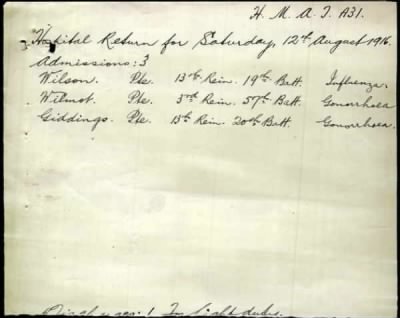 H. M. A. T. A31.
Hospital Return for Saturday, 12th August 1916.
Admissions: 3
Wilson. Pte. 13th Rein. 19th Batt. Influenza.
Wilmot. Pte. 3rd Rein. 57th Batt. Gonorrhoea
Giddings. Pte. 13th Rein. 20th Batt. Gonorrhoea.
Discharges: 1 To light duties.